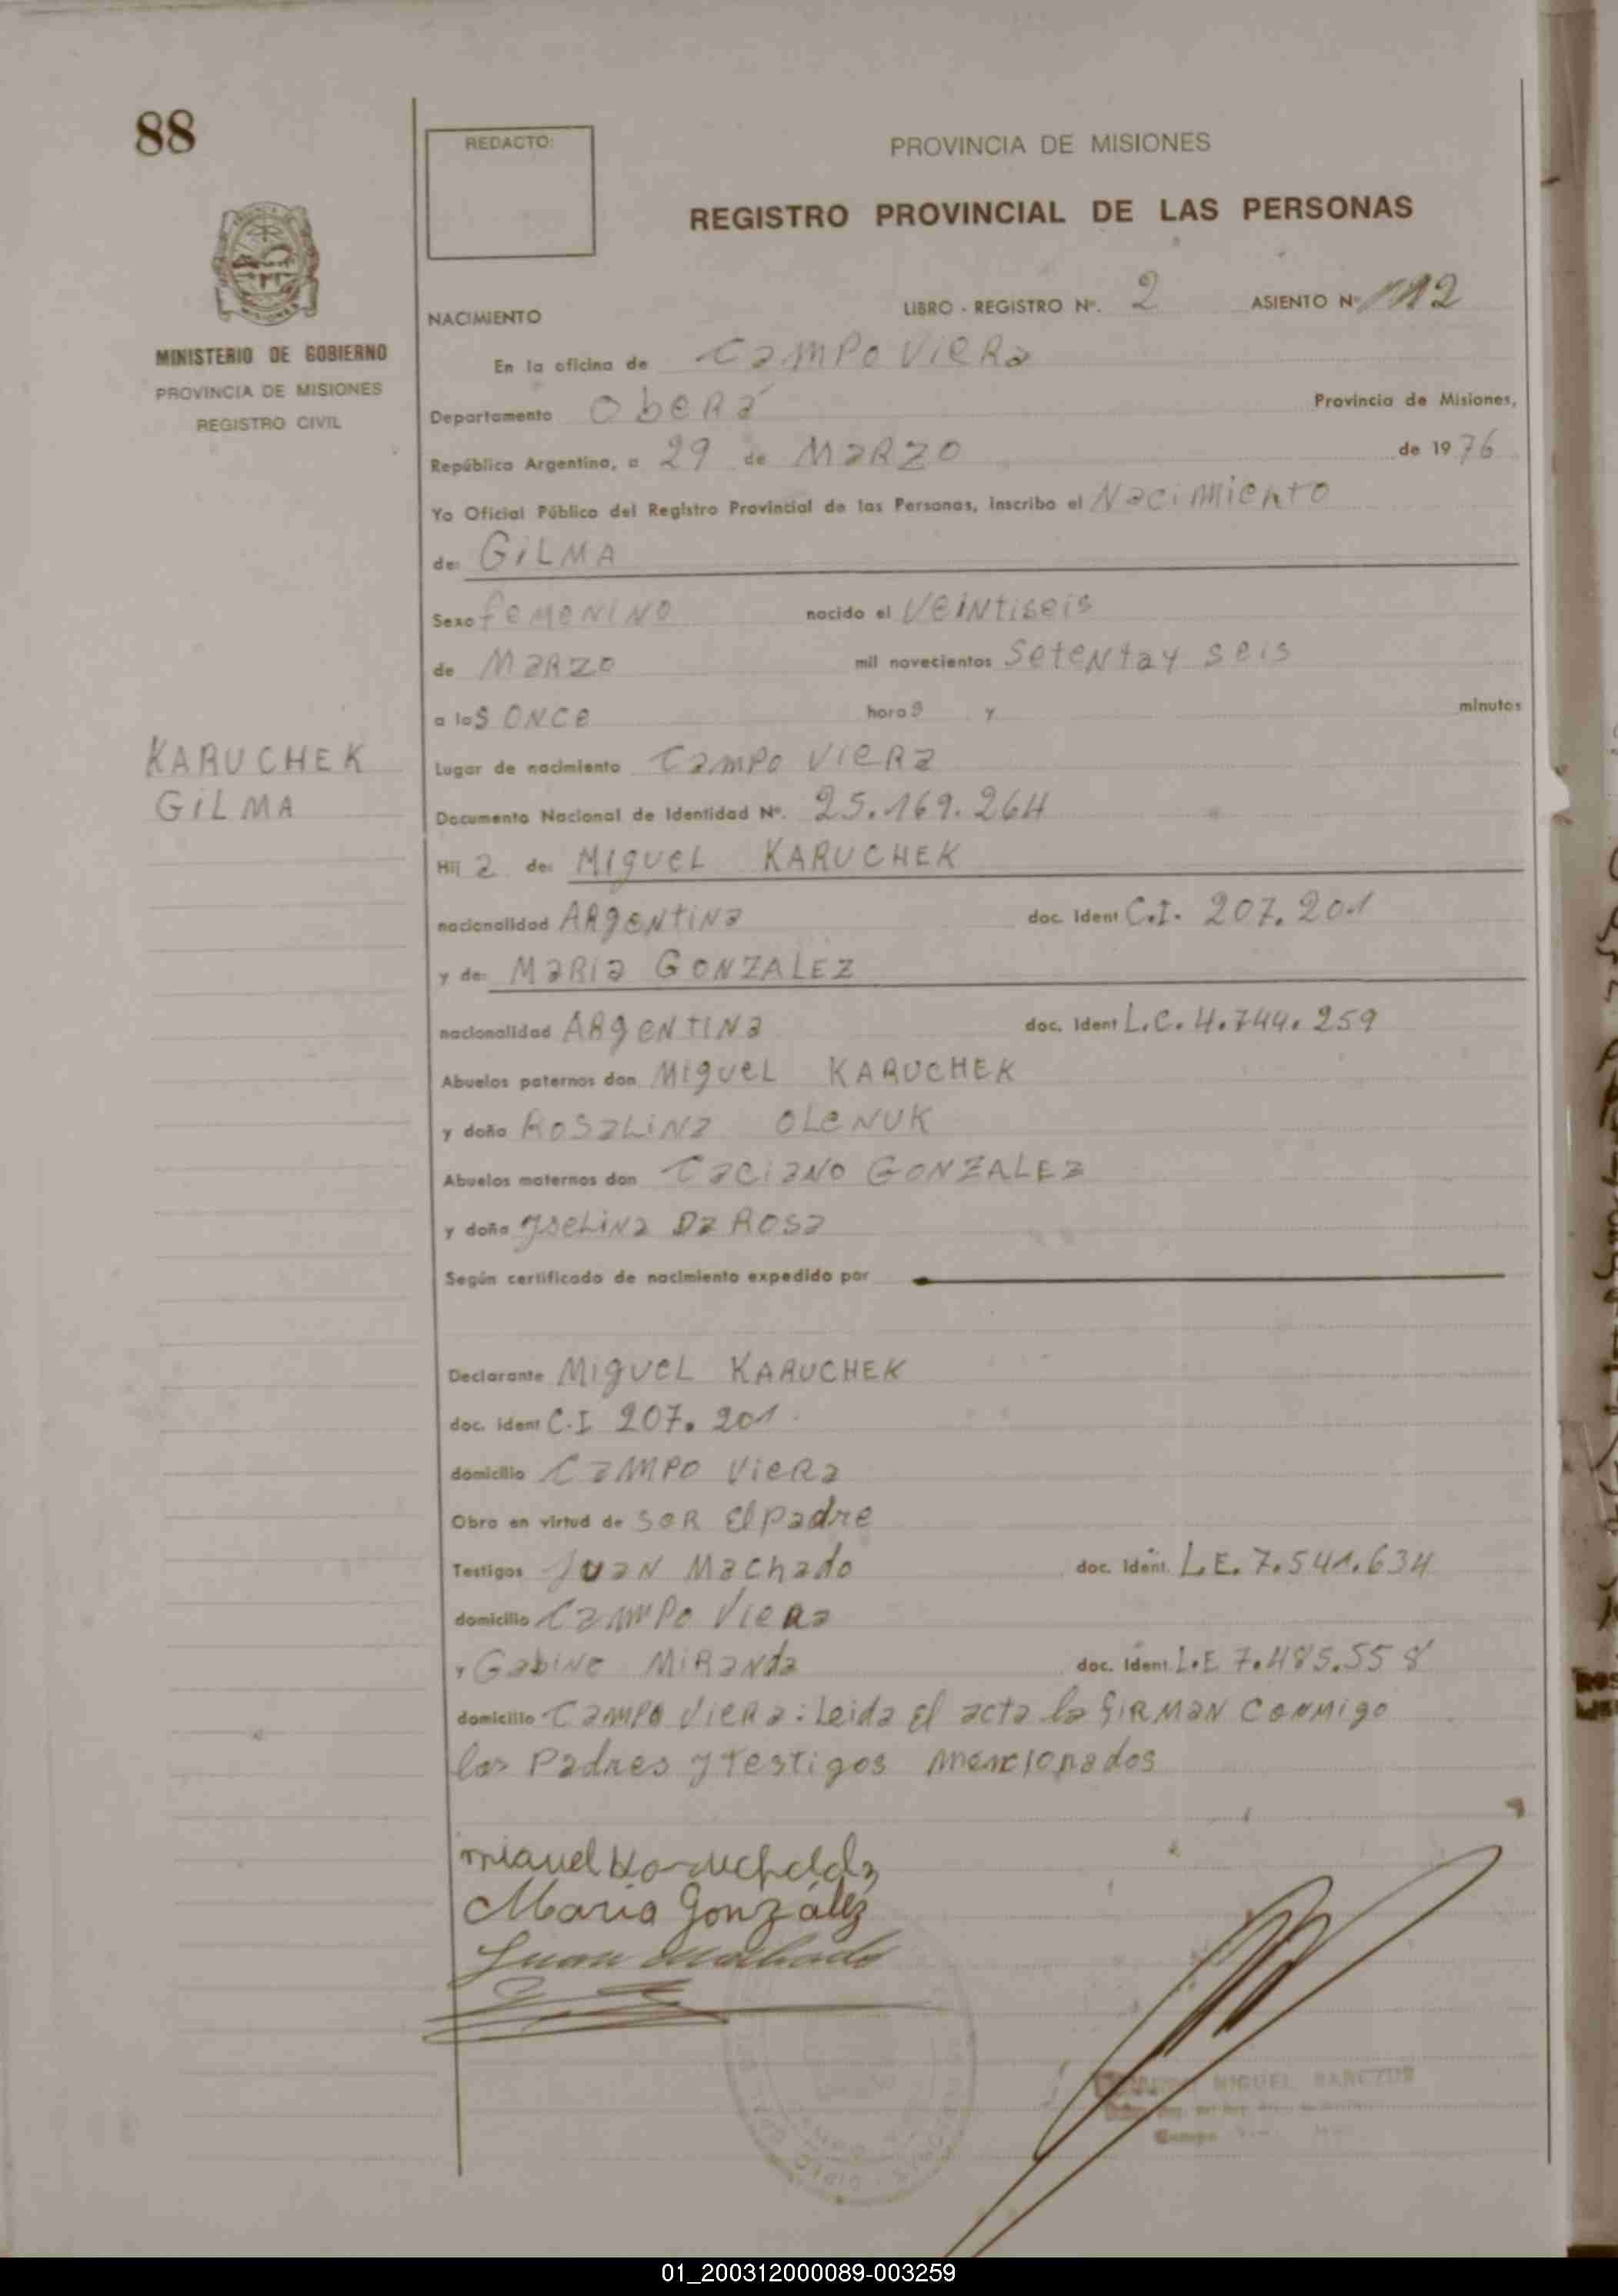 88
REDACTO:
PROVINCIA DE MISIONES
REGISTRO PROVINCIAL DE LAS PERSONAS
MINISTERIO DE GOBIERNO
PROVINCIA DE MISIONES
REGISTRO CIVIL
NACIMIENTO LIBRO - REGISTRO Nº. 2 ASIENTO Nº 112
En la oficina de Campo Viera
Departamento Oberá Provincia de Misiones,
República Argentina, a 29 de Marzo de 1976
Yo Oficial Público del Registro Provincial de las Personas, inscribo el Nacimiento
de: GILMA
Sexo femenino nacido el Veintiseis
de Marzo mil novecientos Setenta y seis
a las once horas y minutos
KARUCHEK
GILMA
Lugar de nacimiento Campo Viera
Documento Nacional de Identidad Nº. 25.169.264
Hija de: Miguel KARUCHEK
nacionalidad Argentina doc. Ident C.I. 207.201
y de: Maria GONZALEZ
nacionalidad Argentina doc. Ident L.C. 4.744.259
Abuelos paternos don Miguel KARUCHEK
y doña Rosalina OLENUK
Abuelos maternos don Taciano GONZALEZ
y doña Joelina Da Rosa
Según certificado de nacimiento expedido por
Declarante Miguel KARUCHEK
doc. ident C.I 207.201
domicilio Campo Viera
Obra en virtud de ser el padre
Testigos Juan Machado doc. Ident. L.E. 7.541.634
domicilio Campo Viera
y Gabino Miranda doc. Ident L.E 7.485.558
domicilio Campo Viera: Leida el acta la firman conmigo
los Padres y testigos mencionados
Maria González
Juan Machado
MIGUEL
Campo
01_200312000089-003259